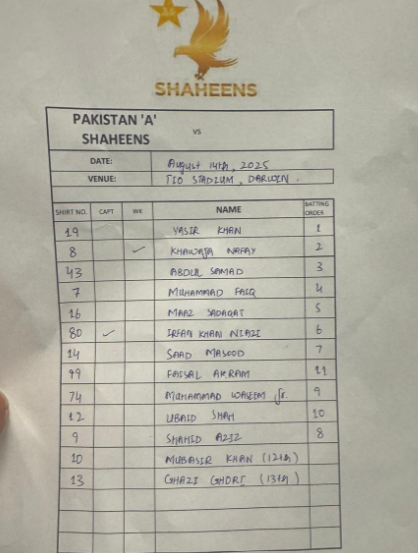 SHAHEENS
PAKISTAN 'A' SHAHEENS vs
DATE: August 14th, 2025
VENUE: TIO STADIUM, DARWIN.
SHIRT NO. CAPT WK NAME BATTING ORDER
19 YASIR KHAN 1
8 ✓ KHAWAJA NAFAY 2
43 ABDUL SAMAD 3
7 MUHAMMAD FAIQ 4
16 MAAZ SADAQAT 5
80 ✓ IRFAN KHAN NIAZI 6
14 SAAD MASOOD 7
99 FAISAL AKRAM 11
74 MUHAMMAD WASEEM Jr. 9
12 UBAID SHAH 10
9 SHAHID AZIZ 8
10 MUBASIR KHAN (12th)
13 GHAZI GHORI (13th)